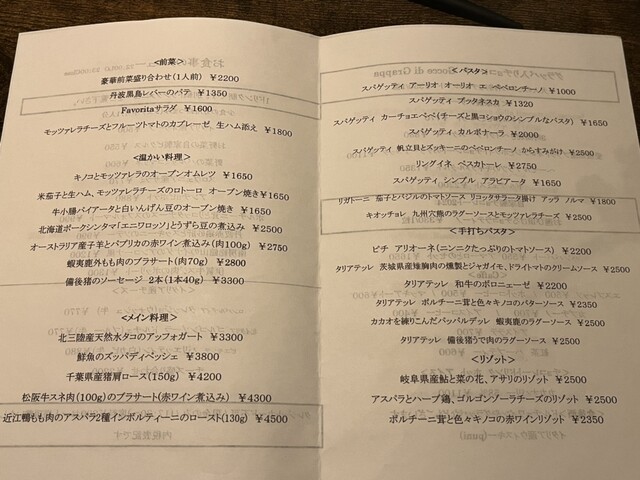 <前菜>
豪華前菜盛り合わせ(1人前) ￥2200
丹波黒鳥レバーのパテ ￥1350
Favoritaサラダ ￥1600
モッツァレラチーズとフルーツトマトのカプレーゼ 生ハム添え ￥1800
<温かい料理>
キノコとモッツァレラのオープンオムレツ ￥1650
米茄子と生ハム、モッツァレラチーズのロトーロ オーブン焼き￥1650
牛小腸パイアータと白いんげん豆のオーブン焼き ￥1650
北海道ポークシンタマ「エニワロッソ」とうずら豆の煮込み ￥2500
オーストラリア産子羊とパプリカの赤ワイン煮込み(肉100g) ￥2750
蝦夷鹿外もも肉のブラサート(肉70g) ￥2800
備後猪のソーセージ 2本(1本40g) ￥3300
<メイン料理>
北三陸産天然水タコのアッフォガート ￥3300
鮮魚のズッパディペッシェ ￥3800
千葉県産猪肩ロース(150g) ￥4200
松阪牛スネ肉(100g)のブラサート(赤ワイン煮込み) ￥4300
近江鴨もも肉のアスパラ2種インボルティーニのロースト(130g) ￥4500
<パスタ>
スパゲッティ アーリオ オーリオ エ ペペロンチーノ ￥1000
スパゲッティ プッタネスカ ￥1320
スパゲッティ カーチョエペペ(チーズと黒コショウのシンプルなパスタ) ￥1650
スパゲッティ カルボナーラ ￥2000
スパゲッティ 帆立貝とズッキーニのペペロンチーノ からすみがけ ￥2500
リングイネ ペスカトーレ ￥2750
スパゲッティ シンプル アラビアータ ￥1650
リガトーニ 茄子とバジルのトマトソース リコッタサラータ掛け アッラ ノルマ ￥1800
キオッチョレ 九州穴熊のラグーソースとモッツァレラチーズ ￥2500
<手打ちパスタ>
ピチ アリオーネ(ニンニクたっぷりのトマトソース) ￥2200
タリアテッレ 茨城県産雉胸肉の燻製とジャガイモ、ドライトマトのクリームソース ￥2500
タリアテッレ 和牛のボロニェーゼ ￥2200
タリアテッレ ポルチーニ茸と色々キノコのバターソース ￥2350
カカオを練りこんだパッパルデッレ 蝦夷鹿のラグーソース ￥2500
タリアテッレ 備後猪うで肉のラグーソース ￥2500
<リゾット>
岐阜県産鮎と菜の花、アサリのリゾット ￥2500
アスパラとハーブ鶏、ゴルゴンゾーラチーズのリゾット ￥2500
ポルチーニ茸と色々キノコの赤ワインリゾット ￥2350